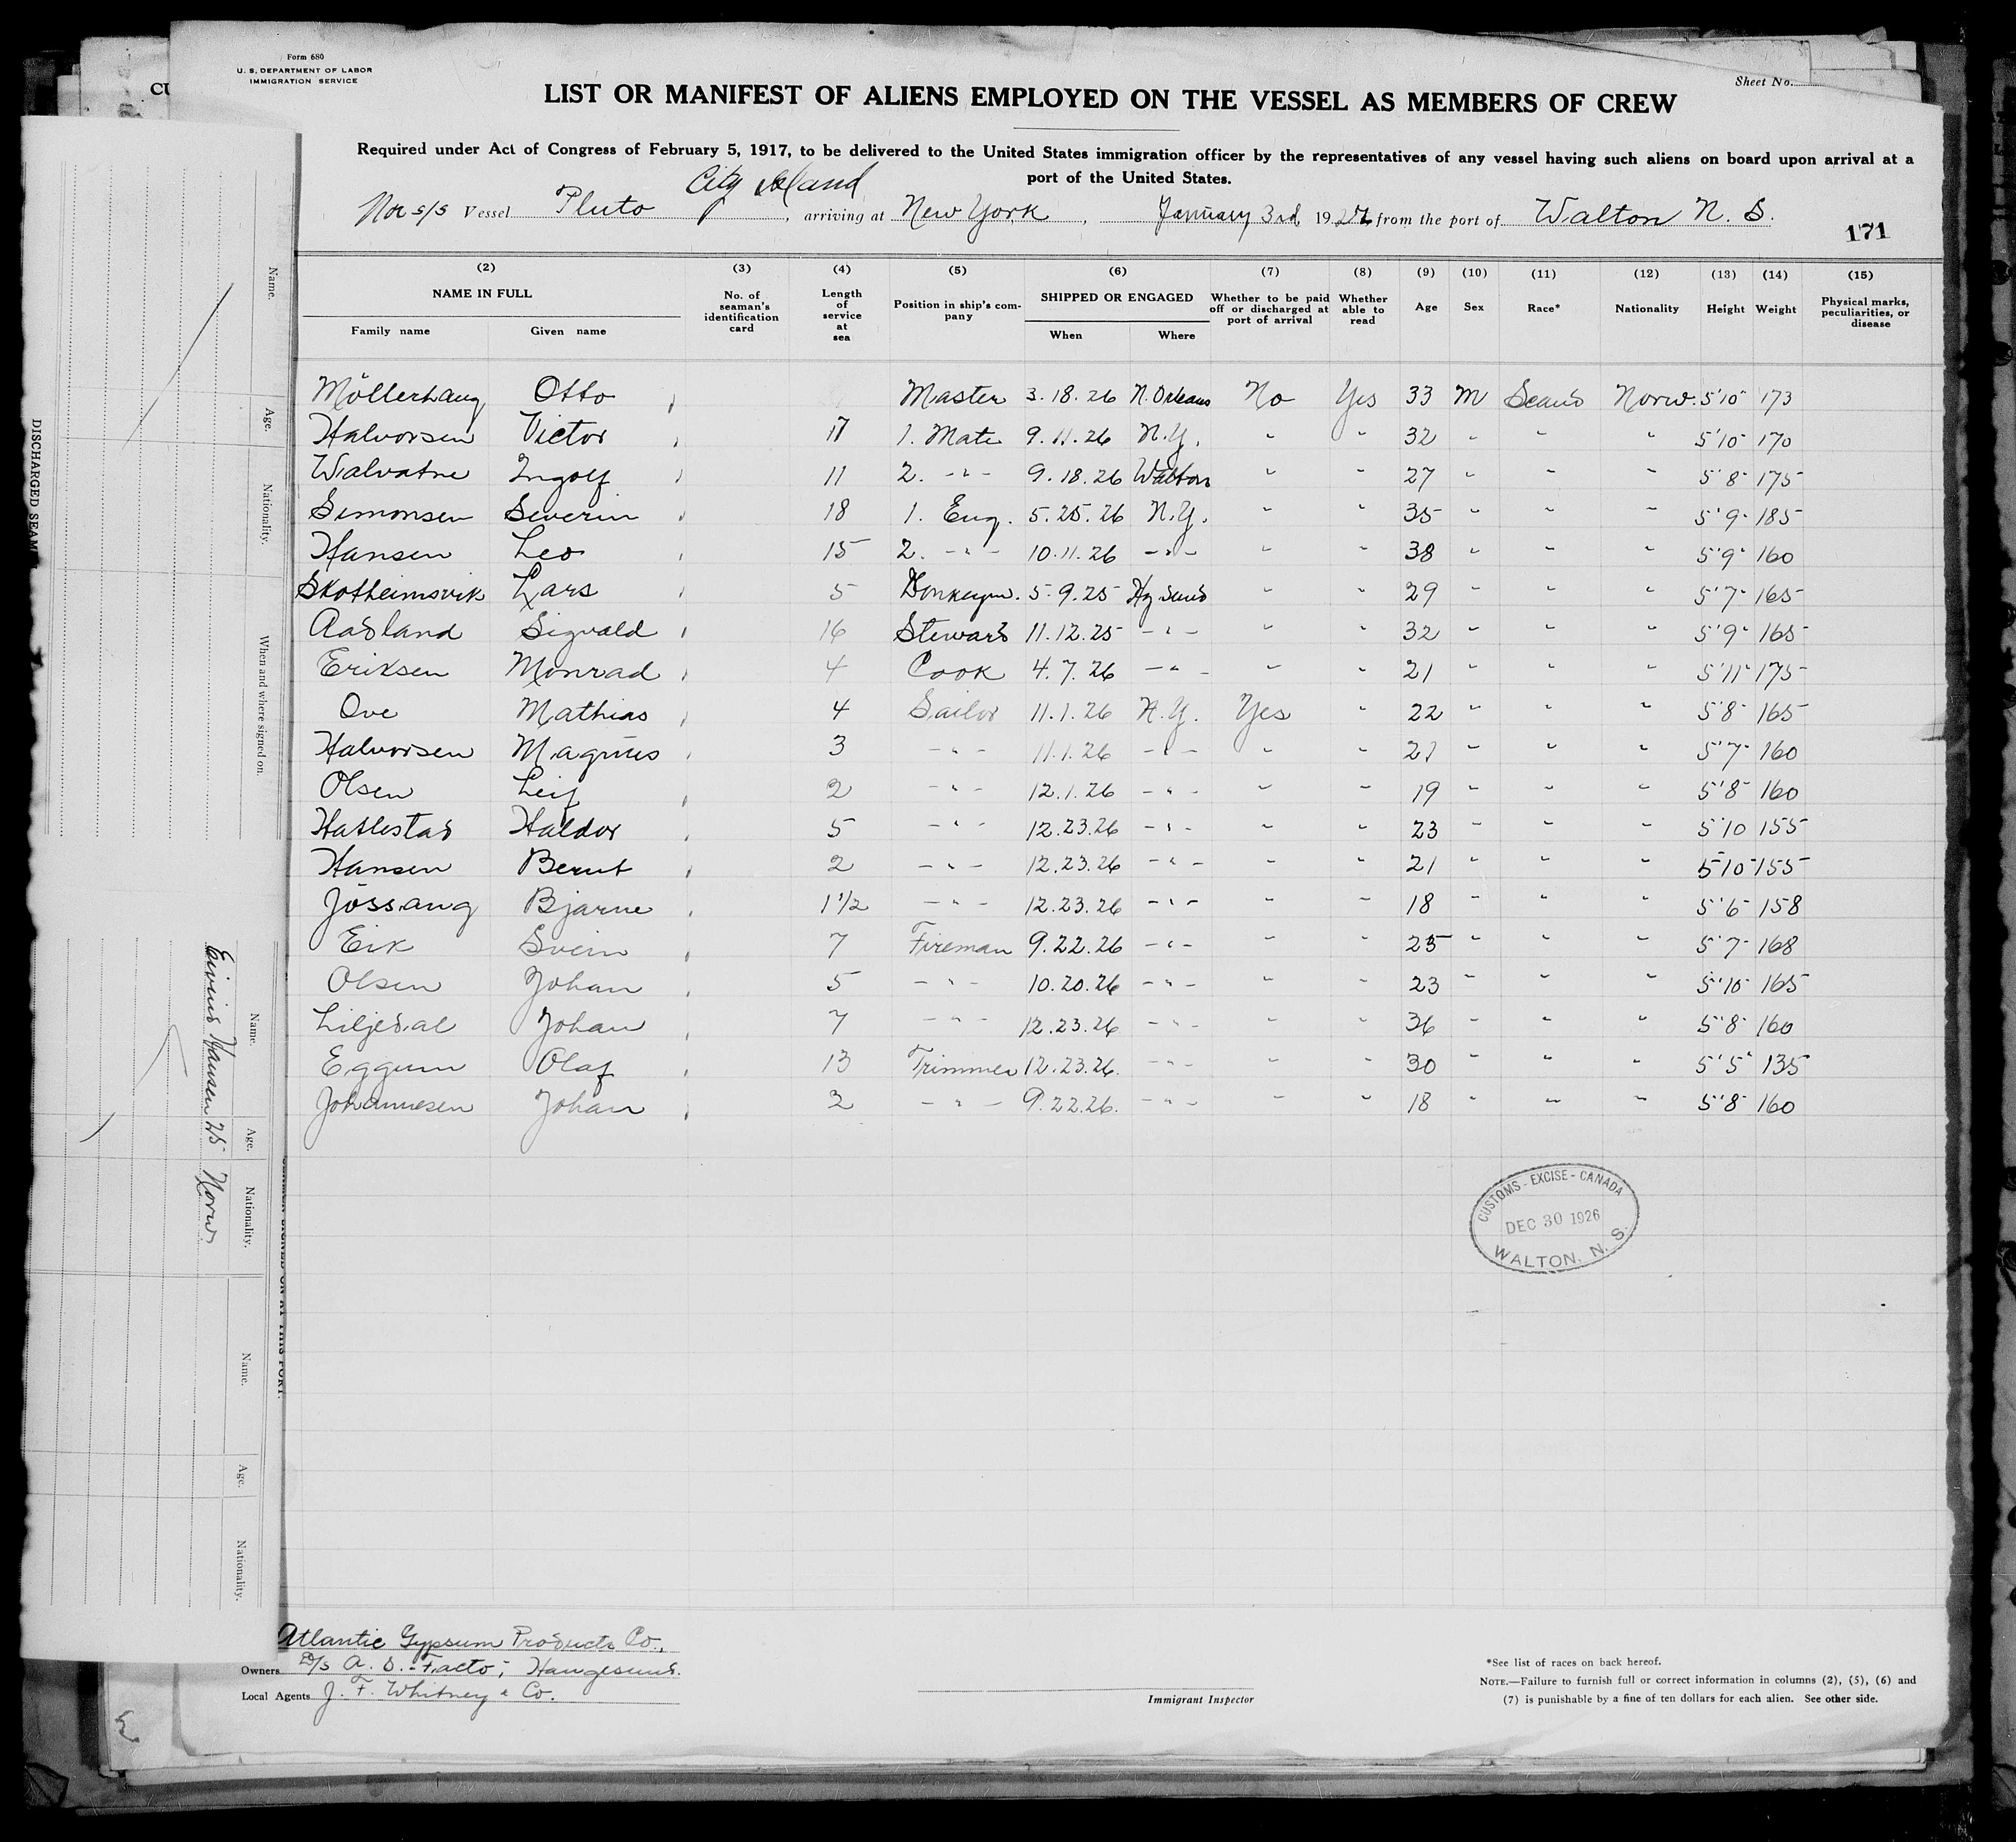 Form 680
U. S. DEPARTMENT OF LABOR
IMMIGRATION SERVICE
Sheet No.
LIST OR MANIFEST OF ALIENS EMPLOYED ON THE VESSEL AS MEMBERS OF CREW
Required under Act of Congress of February 5, 1917, to be delivered to the United States immigration officer by the representatives of any vessel having such aliens on board upon arrival at a
port of the United States.
City Island
Nor s/s Vessel Pluto, arriving at New York, January 3rd 1927 from the port of Walton N. S.
171
(2) (3) (4) (5) (6) (7) (8) (9) (10) (11) (12) (13) (14) (15)
NAME IN FULL No. of seaman's identification card Length of service at sea Position in ship's company SHIPPED OR ENGAGED Whether to be paid off or discharged at port of arrival Whether able to read Age Sex Race* Nationality Height Weight Physical marks, peculiarities, or disease
Family name Given name When Where
Möllerhaug Otto Master 3.18.26 N. Orleans No Yes 33 M Scand Norw. 5'10" 173
Halvorsen Victor 17 1. Mate 9.11.26 N.Y. " " 32 " " " 5'10" 170
Walvatne Ingolf 11 2. -"- 9.18.26 Walton " " 27 " " " 5'8" 175
Simonsen Severin 18 1. Eng. 5.25.26 N.Y. " " 35 " " " 5'9" 185
Hansen Leo 15 2. -"- 10.11.26 -"- " " 38 " " " 5'9" 160
Skotheimsvik Lars 5 Donkeym. 5.9.25 Hgsund " " 29 " " " 5'7" 165
Aasland Sigvald 16 Steward 11.12.25 -"- " " 32 " " " 5'9" 165
Eriksen Monrad 4 Cook 4.7.26 -"- " " 21 " " " 5'11" 175
Ove Mathias 4 Sailor 11.1.26 N.Y. Yes " 22 " " " 5'8" 165
Halvorsen Magnus 3 -"- 11.1.26 -"- " " 21 " " " 5'7" 160
Olsen Leif 2 -"- 12.1.26 -"- " " 19 " " " 5'8" 160
Hatlestad Haldor 5 -"- 12.23.26 -"- " " 23 " " " 5'10 155
Hansen Bernt 2 -"- 12.23.26 -"- " " 21 " " " 5'10" 155
Jössang Bjarne 1 1/2 -"- 12.23.26 -"- " " 18 " " " 5'6" 158
Eik Svein 7 Fireman 9.22.26 -"- " " 25 " " " 5'7" 168
Olsen Johan 5 -"- 10.20.26 -"- " " 23 " " " 5'10" 165
Liljedal Johan 7 -"- 12.23.26 -"- " " 36 " " " 5'8" 160
Eggum Olaf 13 Trimmer 12.23.26. -"- " " 30 " " " 5'5" 135
Johannesen Johan 2 -"- 9.22.26. -"- " " 18 " " " 5'8" 160
CUSTOMS - EXCISE - CANADA
DEC 30 1926
WALTON, N. S.
Atlantic Gypsum Products Co.,
Owners D/s A. S. Facto; Haugesund.
Local Agents J. F. Whitney & Co.
Immigrant Inspector
*See list of races on back hereof.
NOTE.—Failure to furnish full or correct information in columns (2), (5), (6) and
(7) is punishable by a fine of ten dollars for each alien. See other side.
DISCHARGED SEAM
Name. Age. Nationality. When and where signed on.
Name. Age. Nationality.
Eivind Hansen 25 Norw.
Name. Age. Nationality.